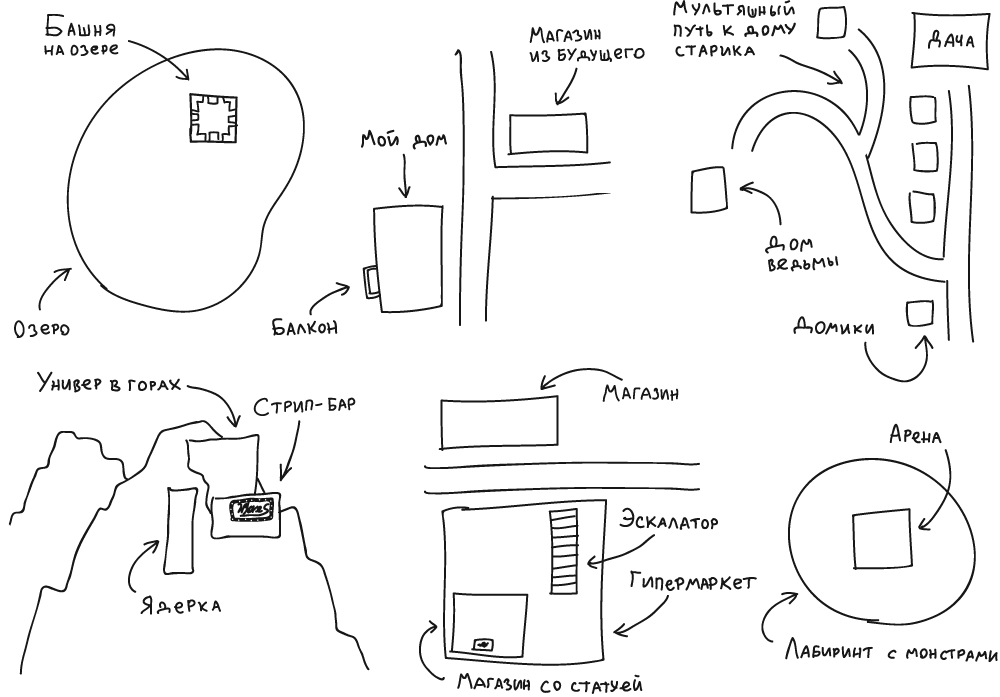 Башня
на озере
Озеро
Мой дом
Балкон
Магазин
из будущего
Мультяшный
путь к дому
старика
Дача
Дом
ведьмы
Домики
Универ в горах
Стрип-бар
Ядерка
Магазин
Эскалатор
Гипермаркет
Магазин со статуей
Арена
Лабиринт с монстрами